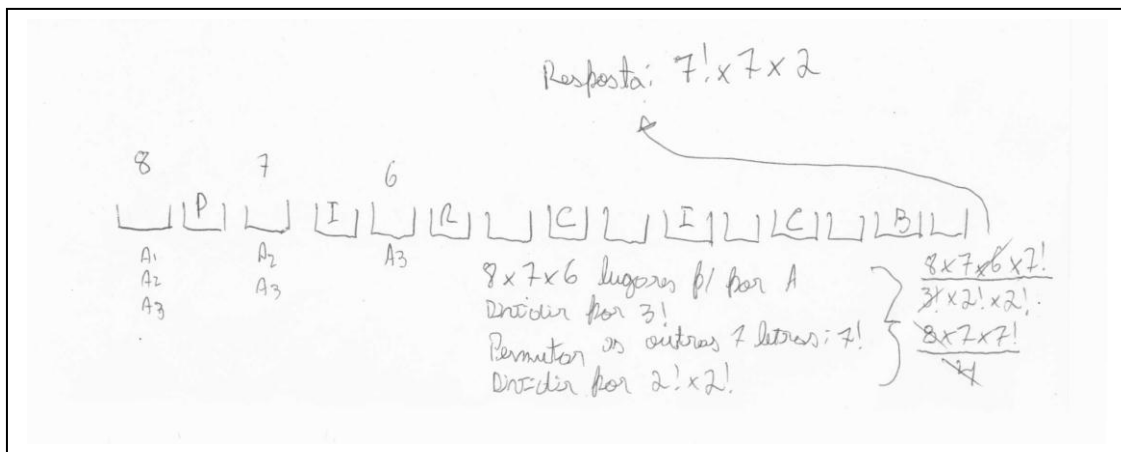 Resposta: 7! x 7 x 2
8 7 6
P I R C I C B
A1 A2 A3
A2 A3
A3
8 x 7 x 6 lugares p/ por A
Dividir por 3!
Permutar as outras 7 letras: 7!
Dividir por 2! x 2!
8 x 7 x 6 x 7!
3! x 2! x 2!
8 x 7 x 7!
4